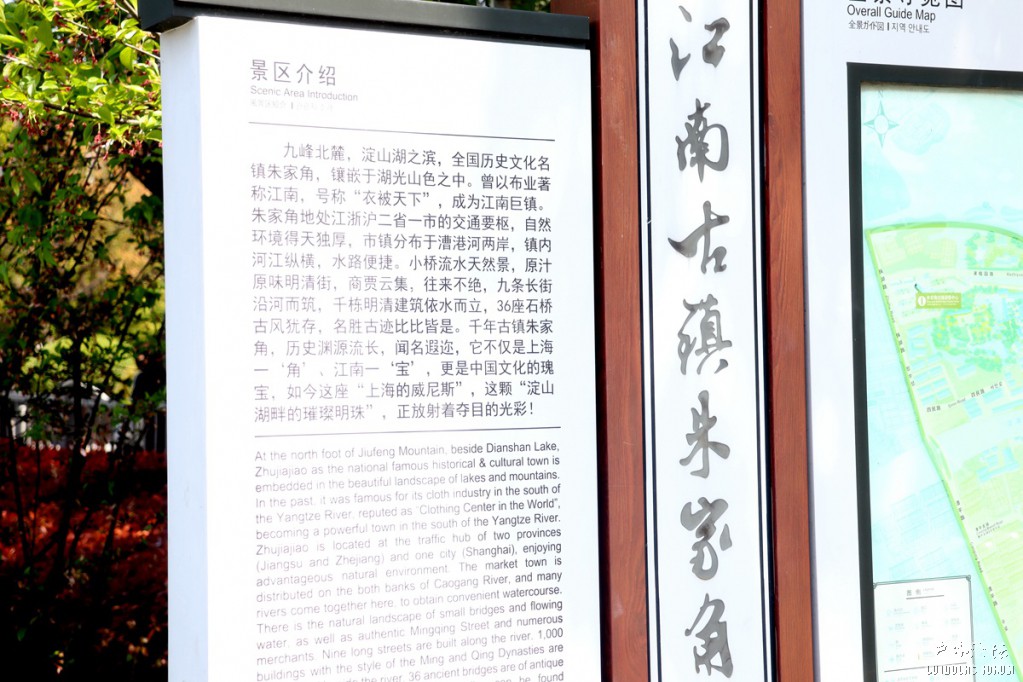 景区介绍
Scenic Area Introduction
九峰北麓，淀山湖之滨，全国历史文化名
镇朱家角，镶嵌于湖光山色之中。曾以布业著
称江南，号称“衣被天下”，成为江南巨镇。
朱家角地处江浙沪二省一市的交通要枢，自然
环境得天独厚，市镇分布于漕港河两岸，镇内
河江纵横，水路便捷。小桥流水天然景，原汁
原味明清街，商贾云集，往来不绝，九条长街
沿河而筑，千栋明清建筑依水而立，36座石桥
古风犹存，名胜古迹比比皆是。千年古镇朱家
角，历史渊源流长，闻名遐迩，它不仅是上海
一‘角’、江南一‘宝’，更是中国文化的瑰
宝，如今这座“上海的威尼斯”，这颗“淀山
湖畔的璀璨明珠”，正放射着夺目的光彩！
At the north foot of Jiufeng Mountain, beside Dianshan Lake,
Zhujiajiao as the national famous historical & cultural town is
embedded in the beautiful landscape of lakes and mountains.
In the past, it was famous for its cloth industry in the south of
the Yangtze River, reputed as “Clothing Center in the World”,
becoming a powerful town in the south of the Yangtze River.
Zhujiajiao is located at the traffic hub of two provinces
(Jiangsu and Zhejiang) and one city (Shanghai), enjoying
advantageous natural environment. The market town is
distributed on the both banks of Caogang River, and many
rivers come together here, to obtain convenient watercourse.
There is the natural landscape of small bridges and flowing
water, as well as authentic Mingqing Street and numerous
merchants. Nine long streets are built along the river. 1,000
buildings with the style of the Ming and Qing Dynasties are
the river. 36 ancient bridges are of antique
be found
江南古镇朱家角
Overall Guide Map
全景ガイド図 | 지역 안내도
图例